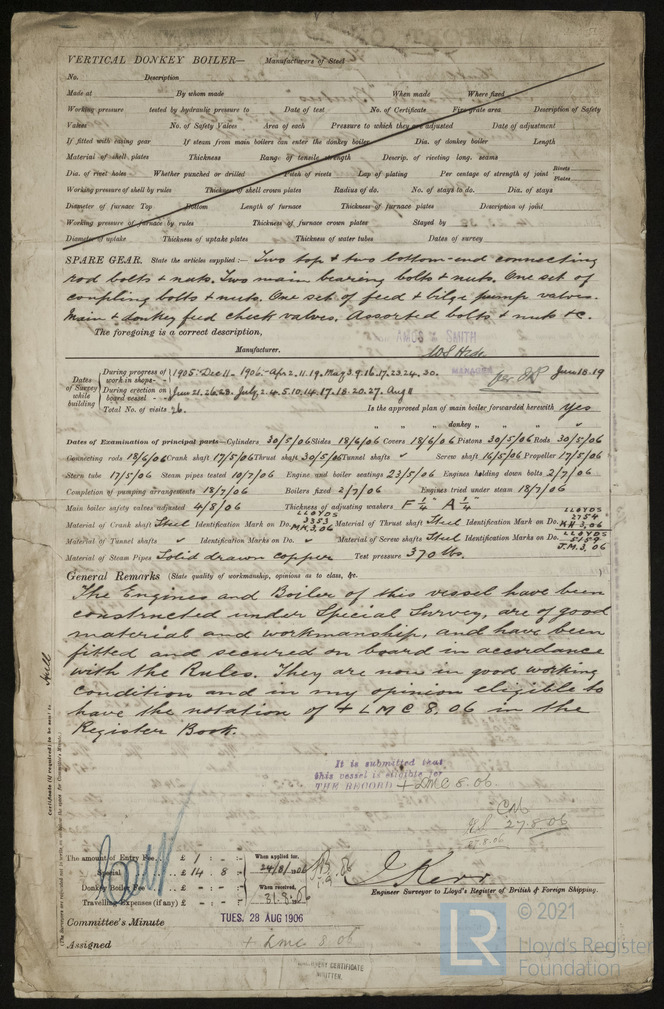 VERTICAL DONKEY BOILER— Manufacturers of Steel
No. Description
Made at By whom made When made Where fixed
Working pressure tested by hydraulic pressure to Date of test No. of Certificate Fire grate area Description of Safety
Valves No. of Safety Valves Area of each Pressure to which they are adjusted Date of adjustment
If fitted with easing gear If steam from main boilers can enter the donkey boiler Dia. of donkey boiler Length
Material of shell plates Thickness Range of tensile strength Descrip. of riveting long. seams
Dia. of rivet holes Whether punched or drilled Pitch of rivets Lap of plating Per centage of strength of joint Rivets Plates
Working pressure of shell by rules Thickness of shell crown plates Radius of do. No. of stays to do. Dia. of stays
Diameter of furnace Top Bottom Length of furnace Thickness of furnace plates Description of joint
Working pressure of furnace by rules Thickness of furnace crown plates Stayed by
Diameter of uptake Thickness of uptake plates Thickness of water tubes Dates of survey
SPARE GEAR. State the articles supplied:— Two top & two bottom-end connecting
rod bolts & nuts. Two main bearing bolts & nuts. One set of
coupling bolts & nuts. One set of feed & bilge pump valves.
Main & donkey feed check valves. Assorted bolts & nuts &c.
The foregoing is a correct description,
AMOS & SMITH
Manufacturer.
MANAGER
Dates of Survey while building
During progress of work in shops-- 1905: Dec 11 - 1906: Apr 2. 11. 19. May 3. 9. 16. 17. 23. 24. 30. Jun 18. 19
During erection on board vessel--- Jun 21. 26. 28. July 2. 4. 5. 10. 14. 17. 18. 20. 27. Aug 11
Total No. of visits 26. Is the approved plan of main boiler forwarded herewith Yes
" " " donkey " " "
Dates of Examination of principal parts—Cylinders 30/5/06 Slides 18/6/06 Covers 18/6/06 Pistons 30/5/06 Rods 30/5/06
Connecting rods 18/6/06 Crank shaft 17/5/06 Thrust shaft 30/5/06 Tunnel shafts " Screw shaft 16/5/06 Propeller 17/5/06
Stern tube 17/5/06 Steam pipes tested 10/7/06 Engine and boiler seatings 23/5/06 Engines holding down bolts 2/7/06
Completion of pumping arrangements 18/7/06 Boilers fixed 2/7/06 Engines tried under steam 18/7/06
Main boiler safety valves adjusted 4/8/06 Thickness of adjusting washers F 1/4 A 1/4
Material of Crank shaft Steel Identification Mark on Do. LLOYDS 2353 MK.3.06 Material of Thrust shaft Steel Identification Mark on Do. LLOYDS 2754 KH.3.06
Material of Tunnel shafts " Identification Marks on Do. " Material of Screw shafts Steel Identification Marks on Do. LLOYDS 5159 J.M.3.06
Material of Steam Pipes Solid drawn copper Test pressure 370 lbs.
General Remarks (State quality of workmanship, opinions as to class, &c.
The Engines and Boiler of this vessel have been
constructed under Special Survey, are of good
material and workmanship, and have been
fitted and secured on board in accordance
with the Rules. They are now in good working
condition and in my opinion eligible to
have the notation of + LMC 8.06 in the
Register Book.
Hull
It is submitted that
this vessel is eligible for
THE RECORD + LMC 8.06
27.8.06
The amount of Entry Fee.. £ 1 : - : - When applied for,
Special £ 14 . 8 : - 24/8/1906
Donkey Boiler Fee £ : : When received,
Travelling Expenses (if any) £ : : 31.8.06
J Kerr
Engineer Surveyor to Lloyd's Register of British & Foreign Shipping.
Committee's Minute TUES. 28 AUG 1906
Assigned + LMC 8.06
CERTIFICATE
WRITTEN
LR
© 2021
Lloyd's Register
Foundation